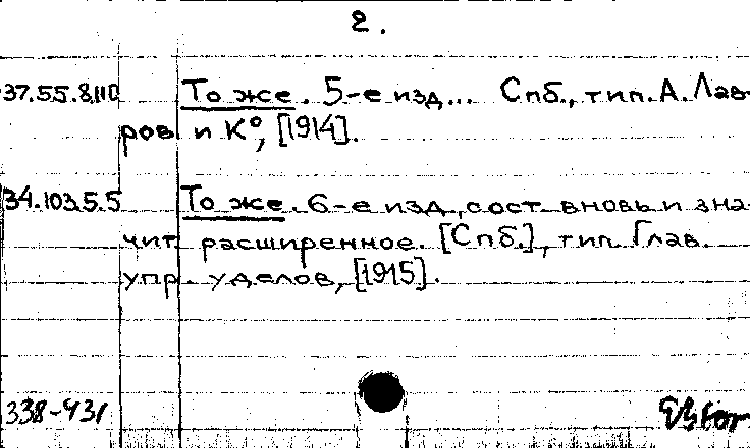 2.
37.55.8.110 То же. 5-е изд... Спб., тип. А. Лав-
ров и К°, [1914].
34.103.5.5 То же. 6-е изд., сост. вновь и зна-
чит. расширенное. [Спб.], тип. Глав.
упр. уделов, [1915].
338-431